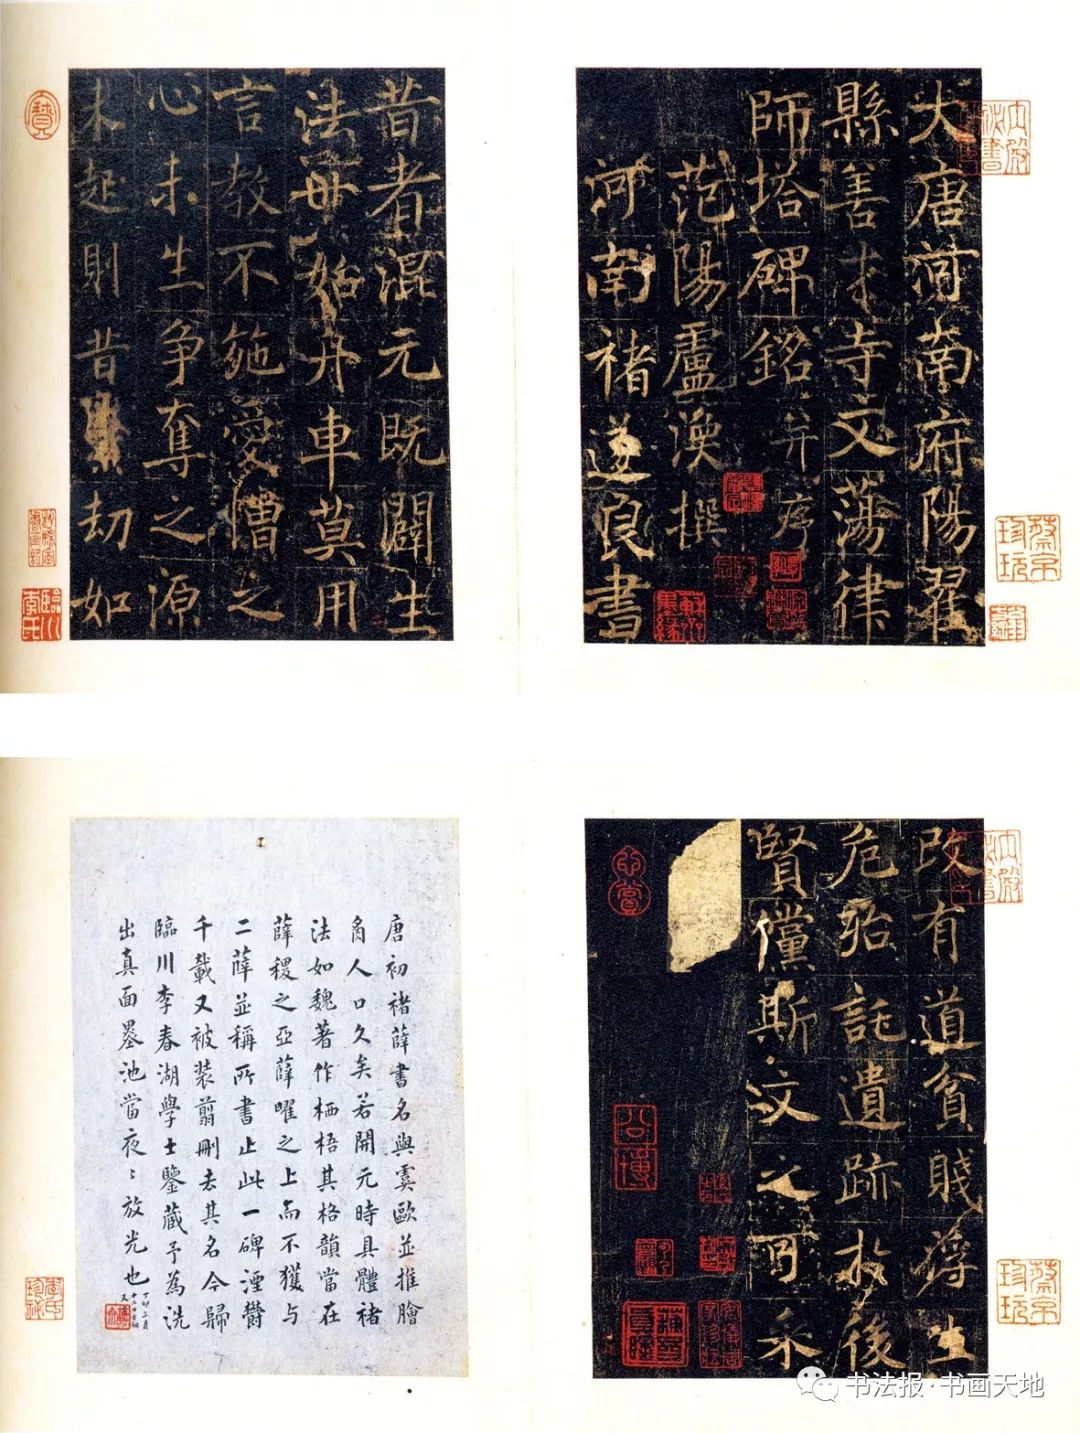 大唐河南府陽翟
縣善才寺文蕩律
師塔碑銘并序
范陽盧渙撰
河南褚遂良書
昔者混元既闢生
法毋始舟車莫用
言教不施愛憎之
心未生爭奪之源
未起則昔劫如
改有道貧賤薄生
危殆託遺跡於後
賢儻斯汶之可采
唐初褚薛書名與虞歐並推膾
炙人口久矣若開元時具體褚
法如魏著作栖梧其格韻當在
薛稷之亞薛曜之上而不獲與
二薛並稱所書止此一碑湮鬱
千載又被裝翦刪去其名今歸
臨川李春湖學士鑒藏予為洗
出真面墨池當夜〻放光也
寶
臨川李氏
蔡京珍玩
公博
李氏珍秘
蔡京珍玩
书法报·书画天地